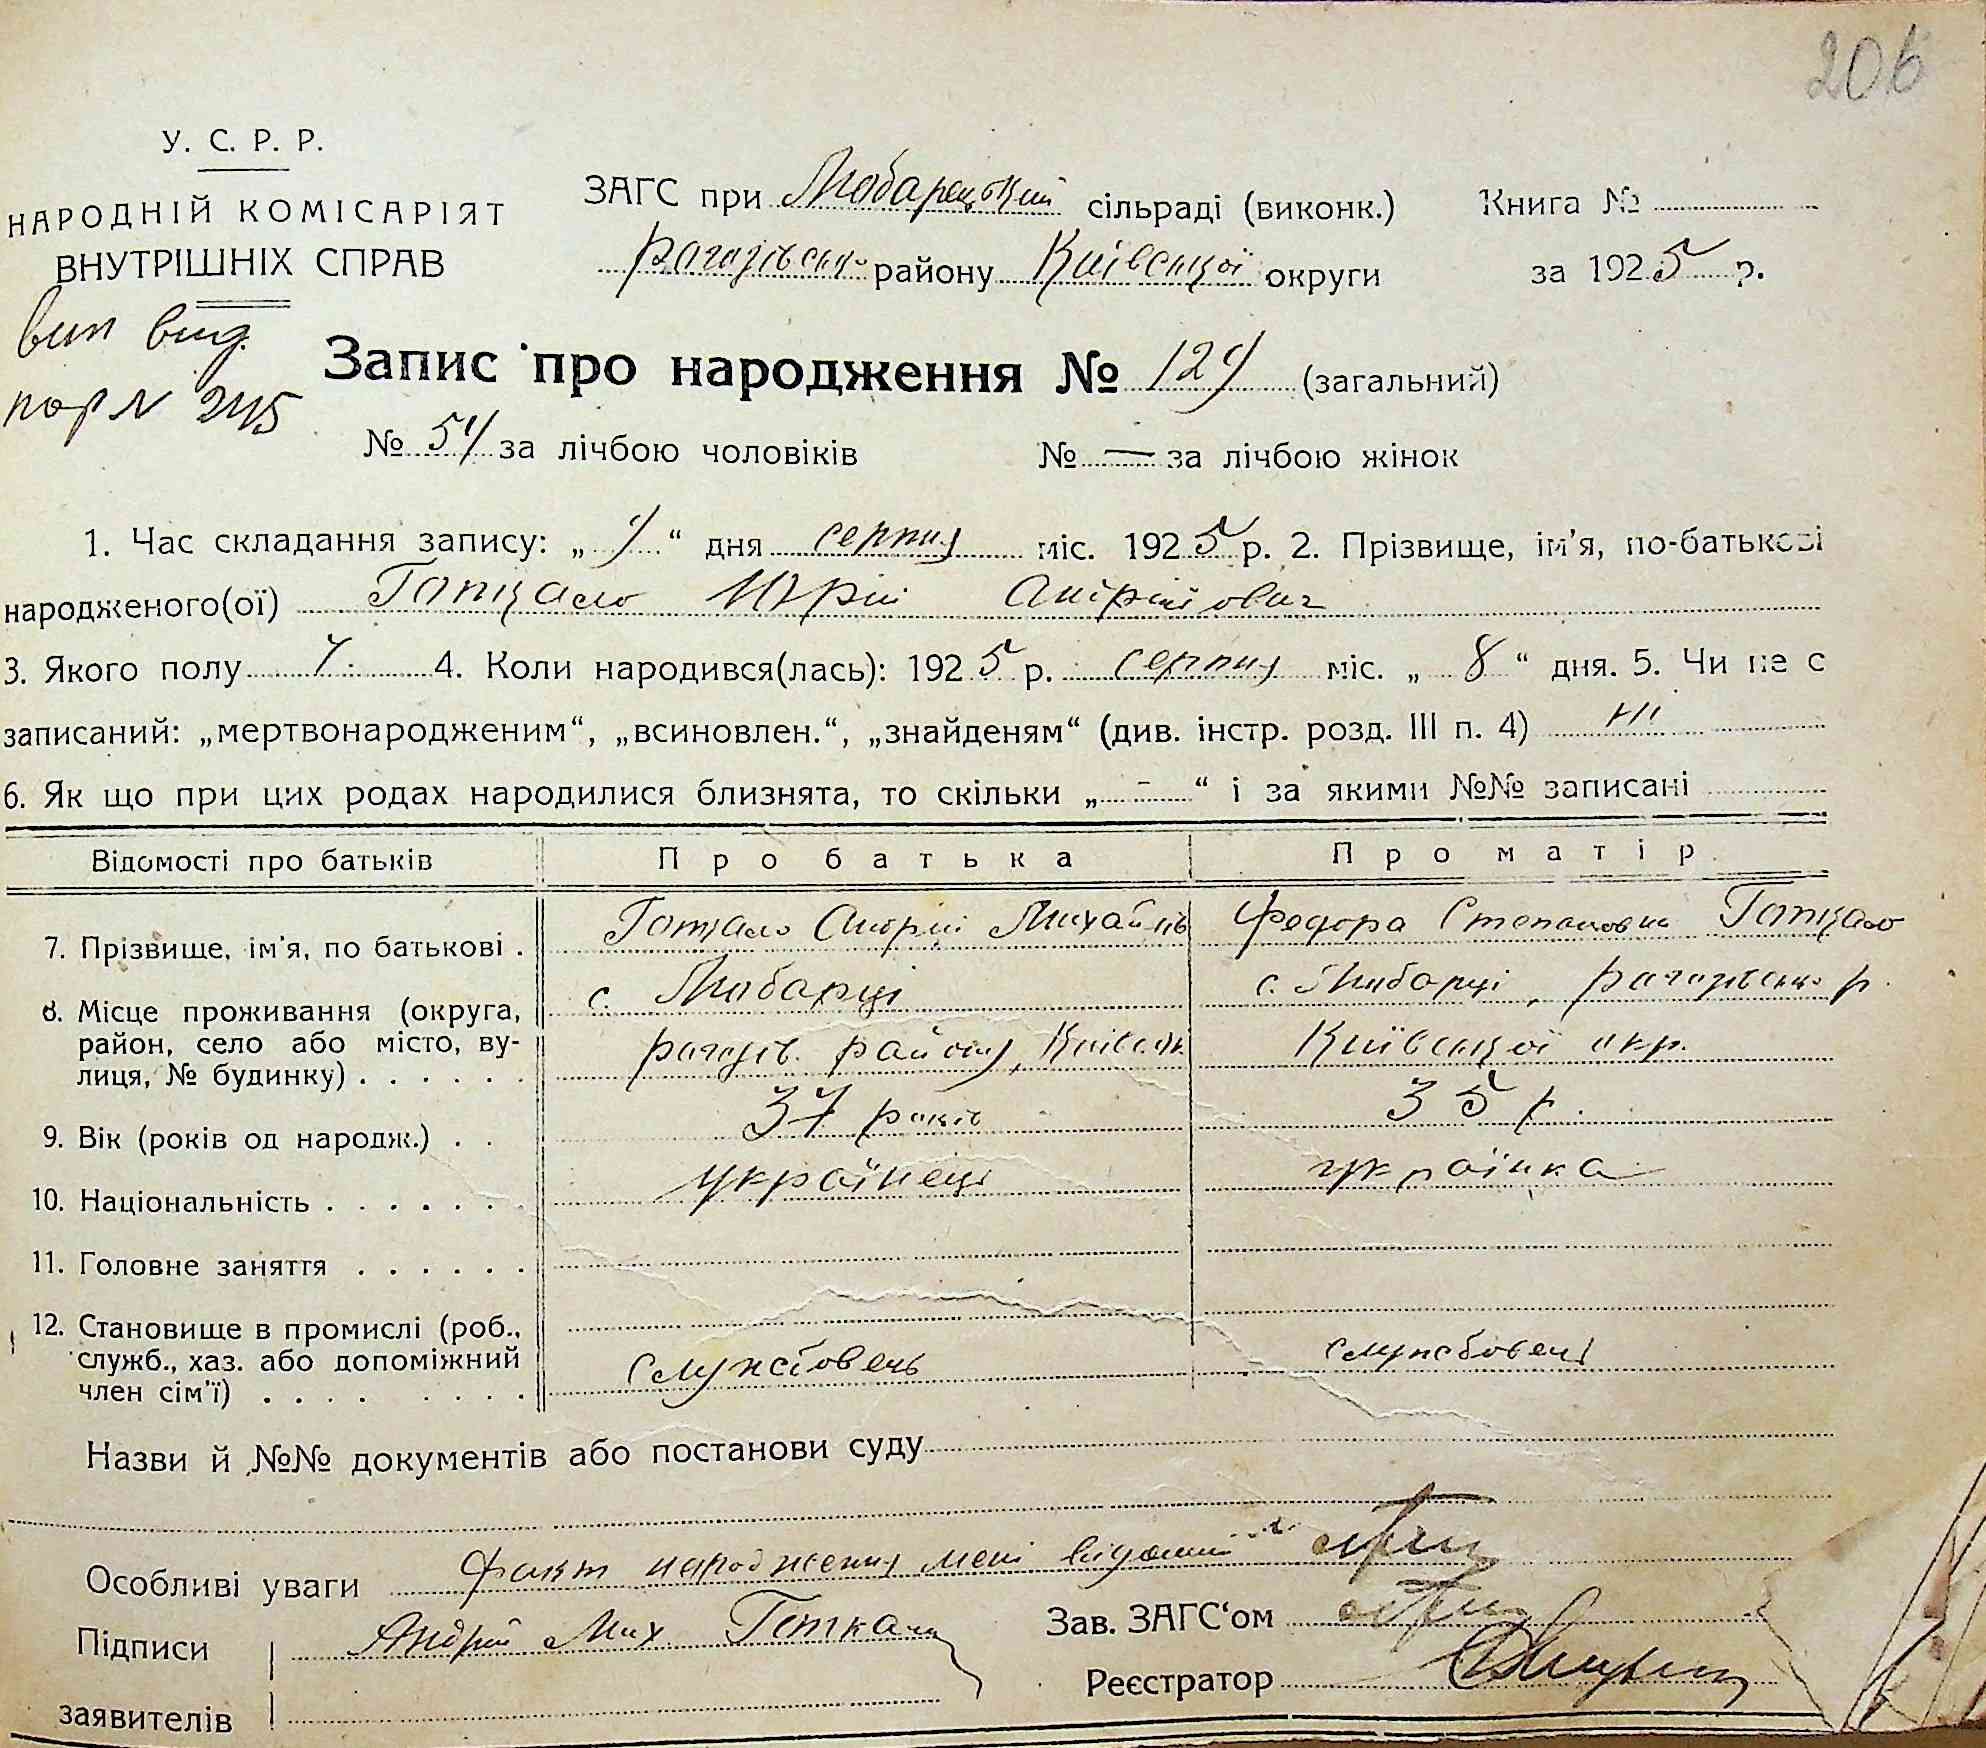 206
У. С. Р. Р.
НАРОДНІЙ КОМІСАРІЯТ
ВНУТРІШНІХ СПРАВ
ЗАГС при Любарецькій сільраді (виконк.) Книга №
Рогозівськ. району Київської округи за 1925 р.
вип вид.
пор N 245
Запис про народження № 124 (загальний)
№ 54 за лічбою чоловіків № — за лічбою жінок
1. Час складання запису: „ “ дня серпня міс. 1925 р. 2. Прізвище, ім'я, по-батькові
народженого(ої) Юрій Андрійович
3. Якого полу ч. 4. Коли народився(лась): 1925 р. серпня міс. „ 8 “ дня. 5. Чи не є
записаний: „мертвонародженим“, „всиновлен.“, „знайденям“ (див. інстр. розд. III п. 4) ні
6. Як що при цих родах народилися близнята, то скільки „ - “ і за якими №№ записані
Відомості про батьків Про батька Про матір
7. Прізвище, ім'я, по батькові . Андрій Михайлів Федора Степановна
8. Місце проживання (округа, с. Любарці с. Любарці, рогозівськ. р.
район, село або місто, ву- рогозів. району, Київськ. Київської окр.
лиця, № будинку) . . . . . .
9. Вік (років од народж.) . . 37 років 35 р.
10. Національність . . . . . . . українець українка
11. Головне заняття . . . . . .
12. Становище в промислі (роб.,
служб., хаз. або допоміжний службовець службовець
член сім'ї) . . . . . . . .
Назви й №№ документів або постанови суду
Особливі уваги Факт народження мені відомий
Підписи Андрій Мих Зав. ЗАГС'ом
заявителів Реєстратор